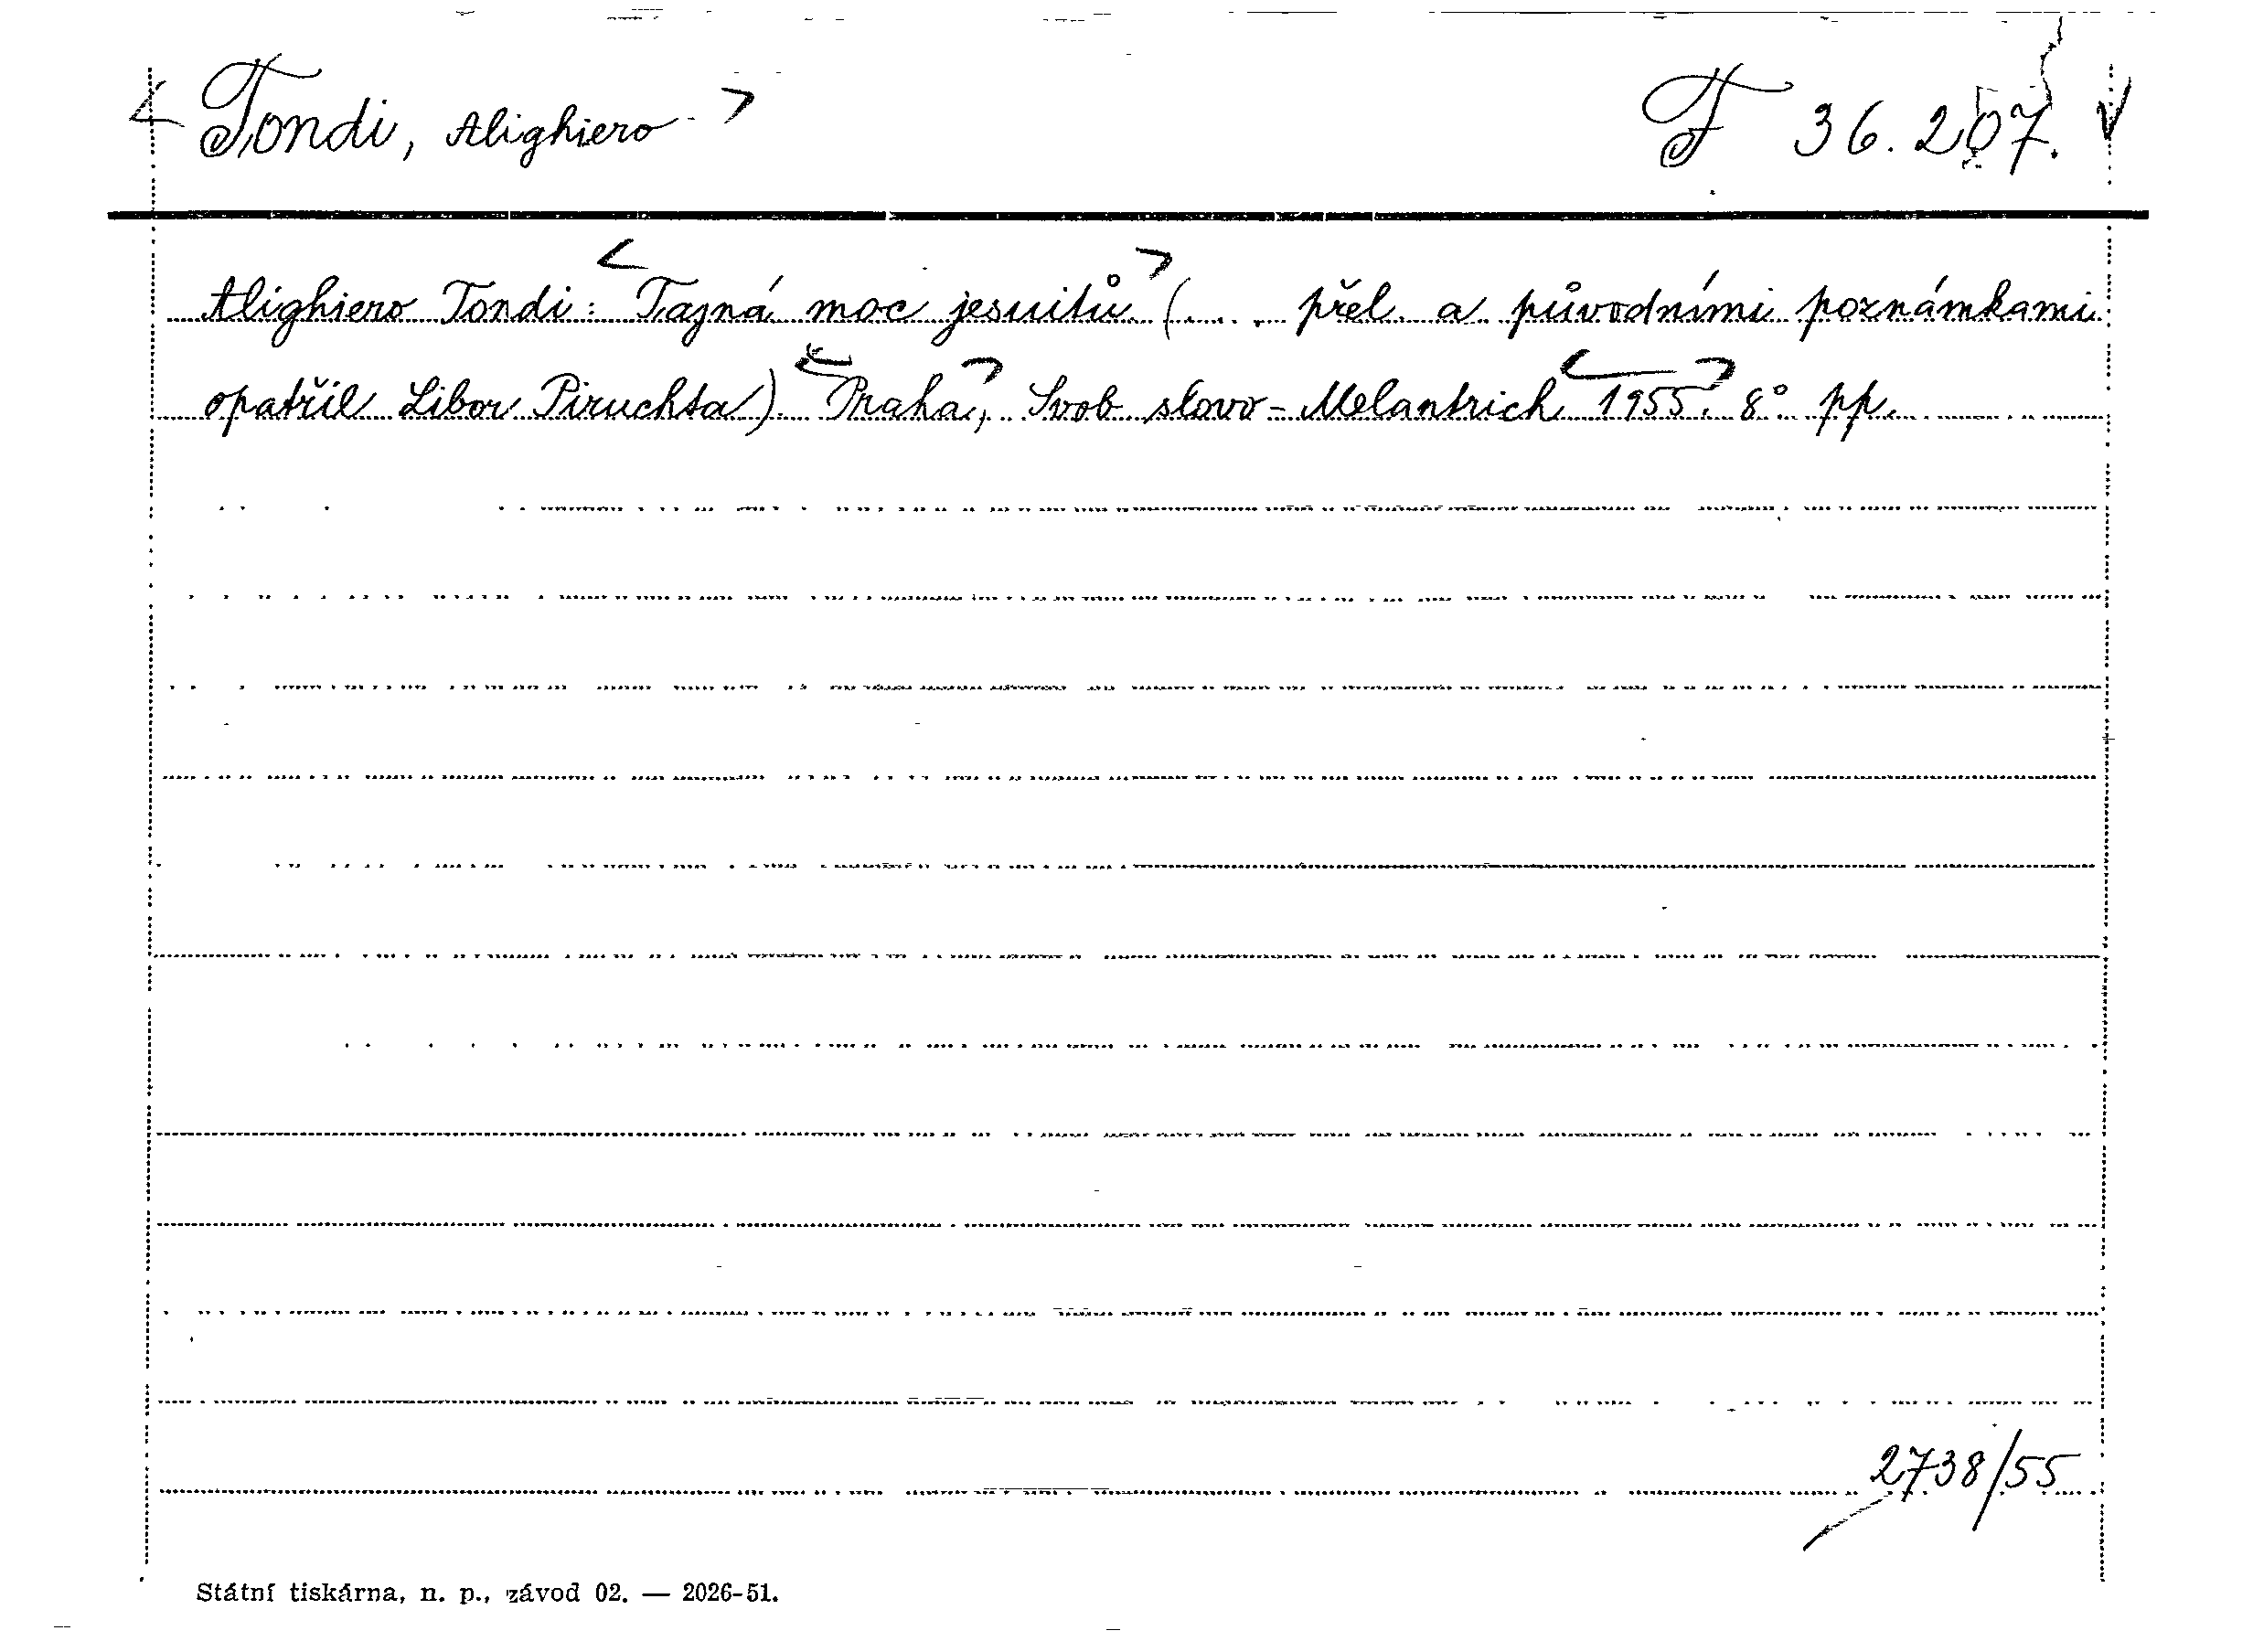 < Tondi, Alighiero > F 36.207.
Alighiero Tondi: <Tajná moc jesuitů> (... přel. a původními poznámkami
opatřil Libor Piruchta). <Praha>, Svob. slovo - Melantrich <1955>. 8° pp.
2738/55
Státní tiskárna, n. p., závod 02. — 2026-51.